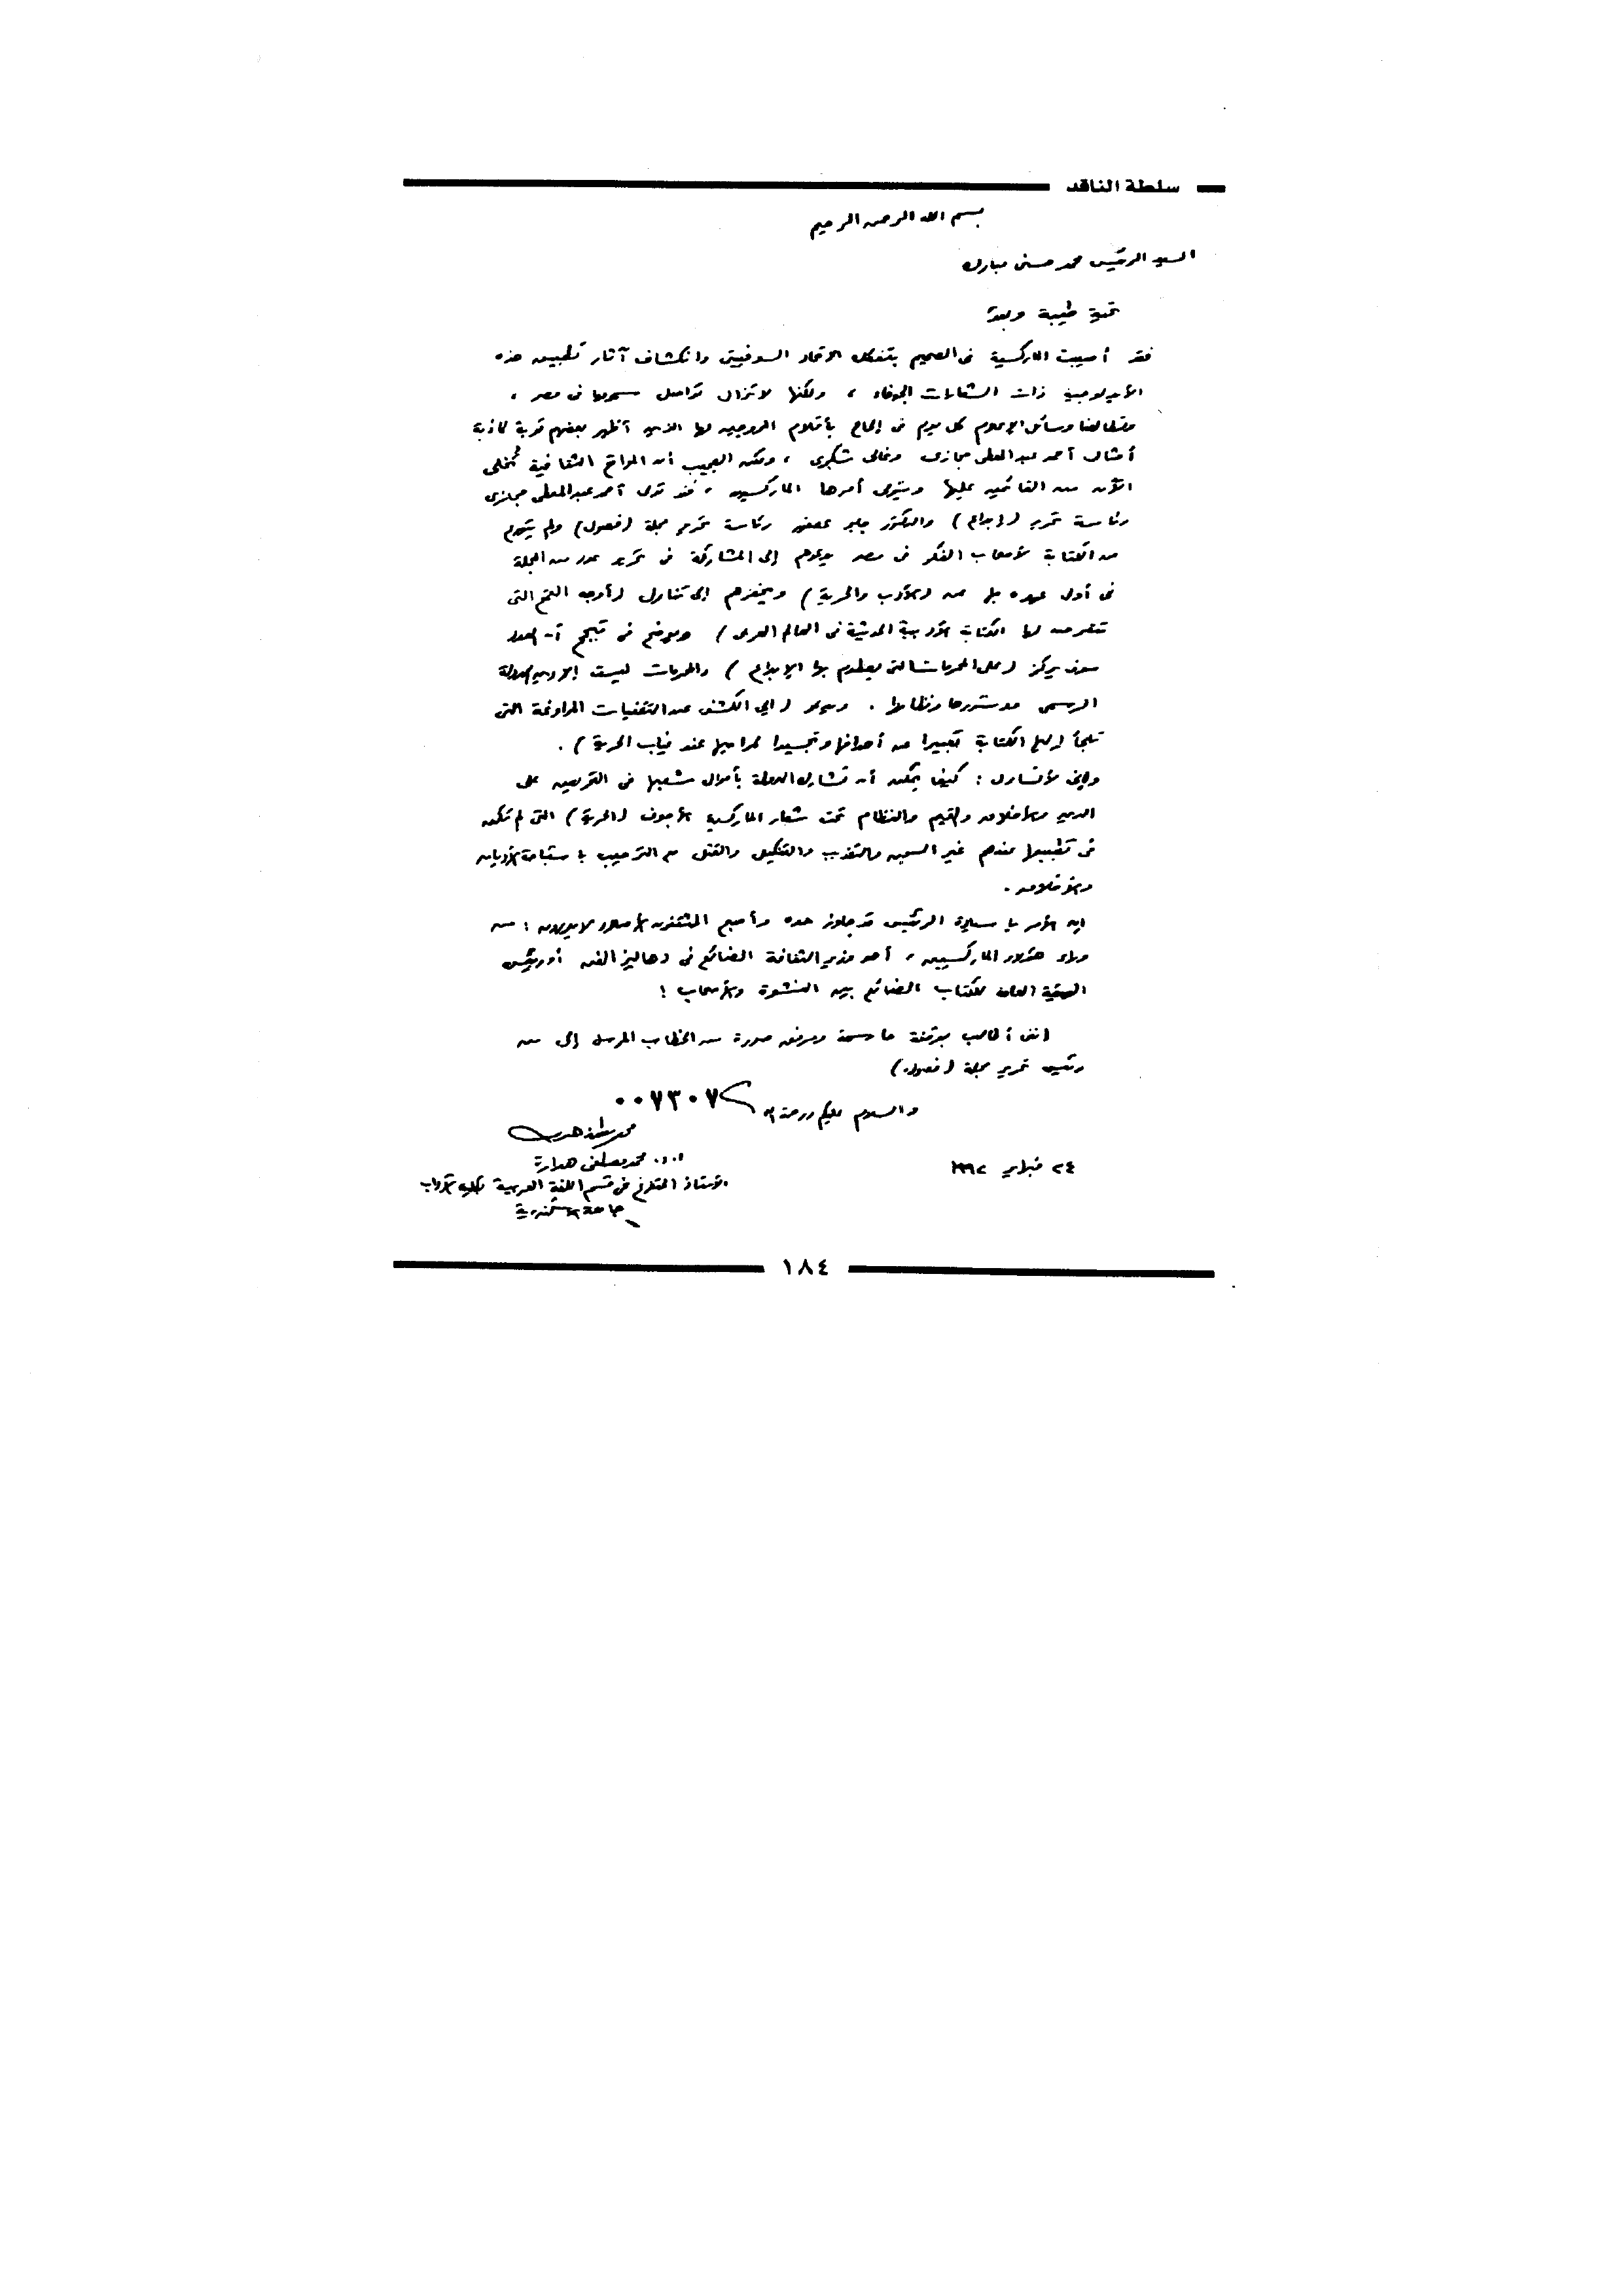 سلطة الناقد
بسم الله الرحمن الرحيم
السيد الرئيس محمد حسنى مبارك
تحية طيبة وبعد
فقد أصيبت الماركسية فى الصميم بتفكك الاتحاد السوفييتى وانكشاف آثار تطبيق هذه
الأيديولوجية ذات الشعارات الجوفاء ، ولكنها لا تزال تواصل سمومها فى مصر ،
وتطالعنا وسائل الإعلام كل يوم فى إلحاح بأقلام المروجين لها الذين أظهر بعضهم توبة كاذبة
أمثال أحمد عبدالمعطى حجازى وغالى شكرى ، ولكن العجيب أن المواقع الثقافية تُخلى
الآن من القائمين عليها ويتولى أمرها الماركسيون ، فقد تولى أحمد عبدالمعطى حجازى
رئاسة تحرير (إبداع) والدكتور جابر عصفور رئاسة تحرير مجلة (فصول) ولم يتورع
من الكتابة لأصحاب الفكر فى مصر يدعوهم إلى المشاركة فى تحرير عدد من المجلة
فى أول عهده بها عن (الأدب والحرية) ويحفزهم إلى تناول (أوجه القمع التى
تتعرض لها الكتابة الأدبية الحديثة فى العالم العربى) ويوضح فى تبجح أن العدد
سوف يركز (على المحرمات التى يصطدم بها الإبداع) والمحرمات ليست إلا دين الدولة
الرسمى ودستورها ونظامها . ويدعو (إلى الكشف عن التقنيات المراوغة التى
تلجأ إليها الكتابة تعبيرا عن أهدافها وتجسيدا لمراميها عند غياب الحرية) .
وإنى لأتساءل : كيف يمكن أن تشارك الدولة بأموال شعبها فى التحريض على
الدين والأخلاق والقيم والنظام تحت شعار الماركسية الأجوف (الحرية) التى لم تكن
فى تطبيقها عندهم غير السجن والتعذيب والتنكيل والقتل مع الترحيب باستباحة الأديان
والأخلاق .
إن الأمر يا سيادة الرئيس قد جاوز حده وأصبح المثقفون لا يدرون : من
وراء هؤلاء الماركسيين ، أهو وزير الثقافة الضائع فى دهاليز الفن أو رئيس
الهيئة العامة للكتاب الضائع بين النشوة والأسحاب !
إننى أطالب بوقفة حاسمة ومرفق صورة من الخطاب المرسل إلى من
رئيس تحرير مجلة (فصول)
والسلام عليكم ورحمة الله
٠٠٧٣٠٧
أ.د. محمد مصطفى هدارة
الأستاذ المتفرغ فى قسم اللغة العربية بكلية الآداب
جامعة الإسكندرية
٢٤ فبراير ١٩٩٢
١٨٤